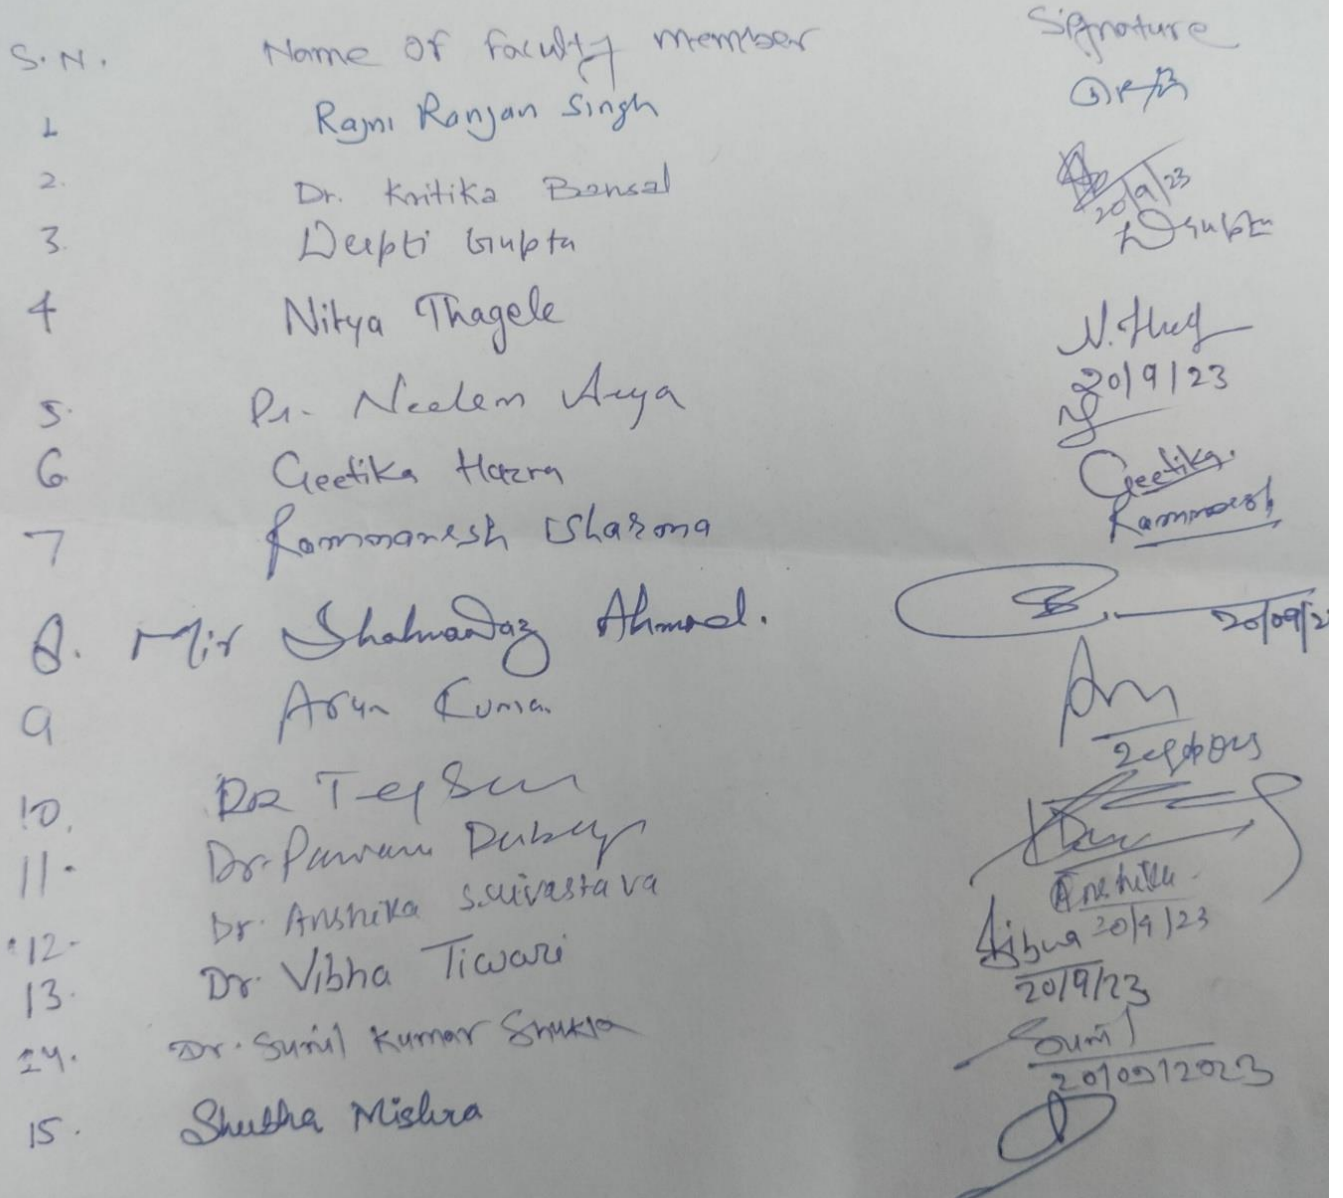 S.N. Name of faculty member Signature
1 Rajni Ranjan Singh
2. Dr. Kritika Bansal 20/9/23
3. Deepti Gupta DGupta
4 Nitya Thagele N. Thag
20/9/23
5. Dr. Neelam Arya
6 Geetika Hazra Geetika.
7 Rammanesh Sharma Rammanesh
8. Mir Shahnawaz Ahmad. 20/09/2
9 Arun Kumar
10. DR Tej
11. Dr. Pawan Dubey
12. Dr. Anshika Srivastava Anshika
20/9/23
13. Dr. Vibha Tiwari Vibha
20/9/23
14. Dr. Sunil Kumar Shukla Sunil
20/09/2023
15. Shubha Mishra